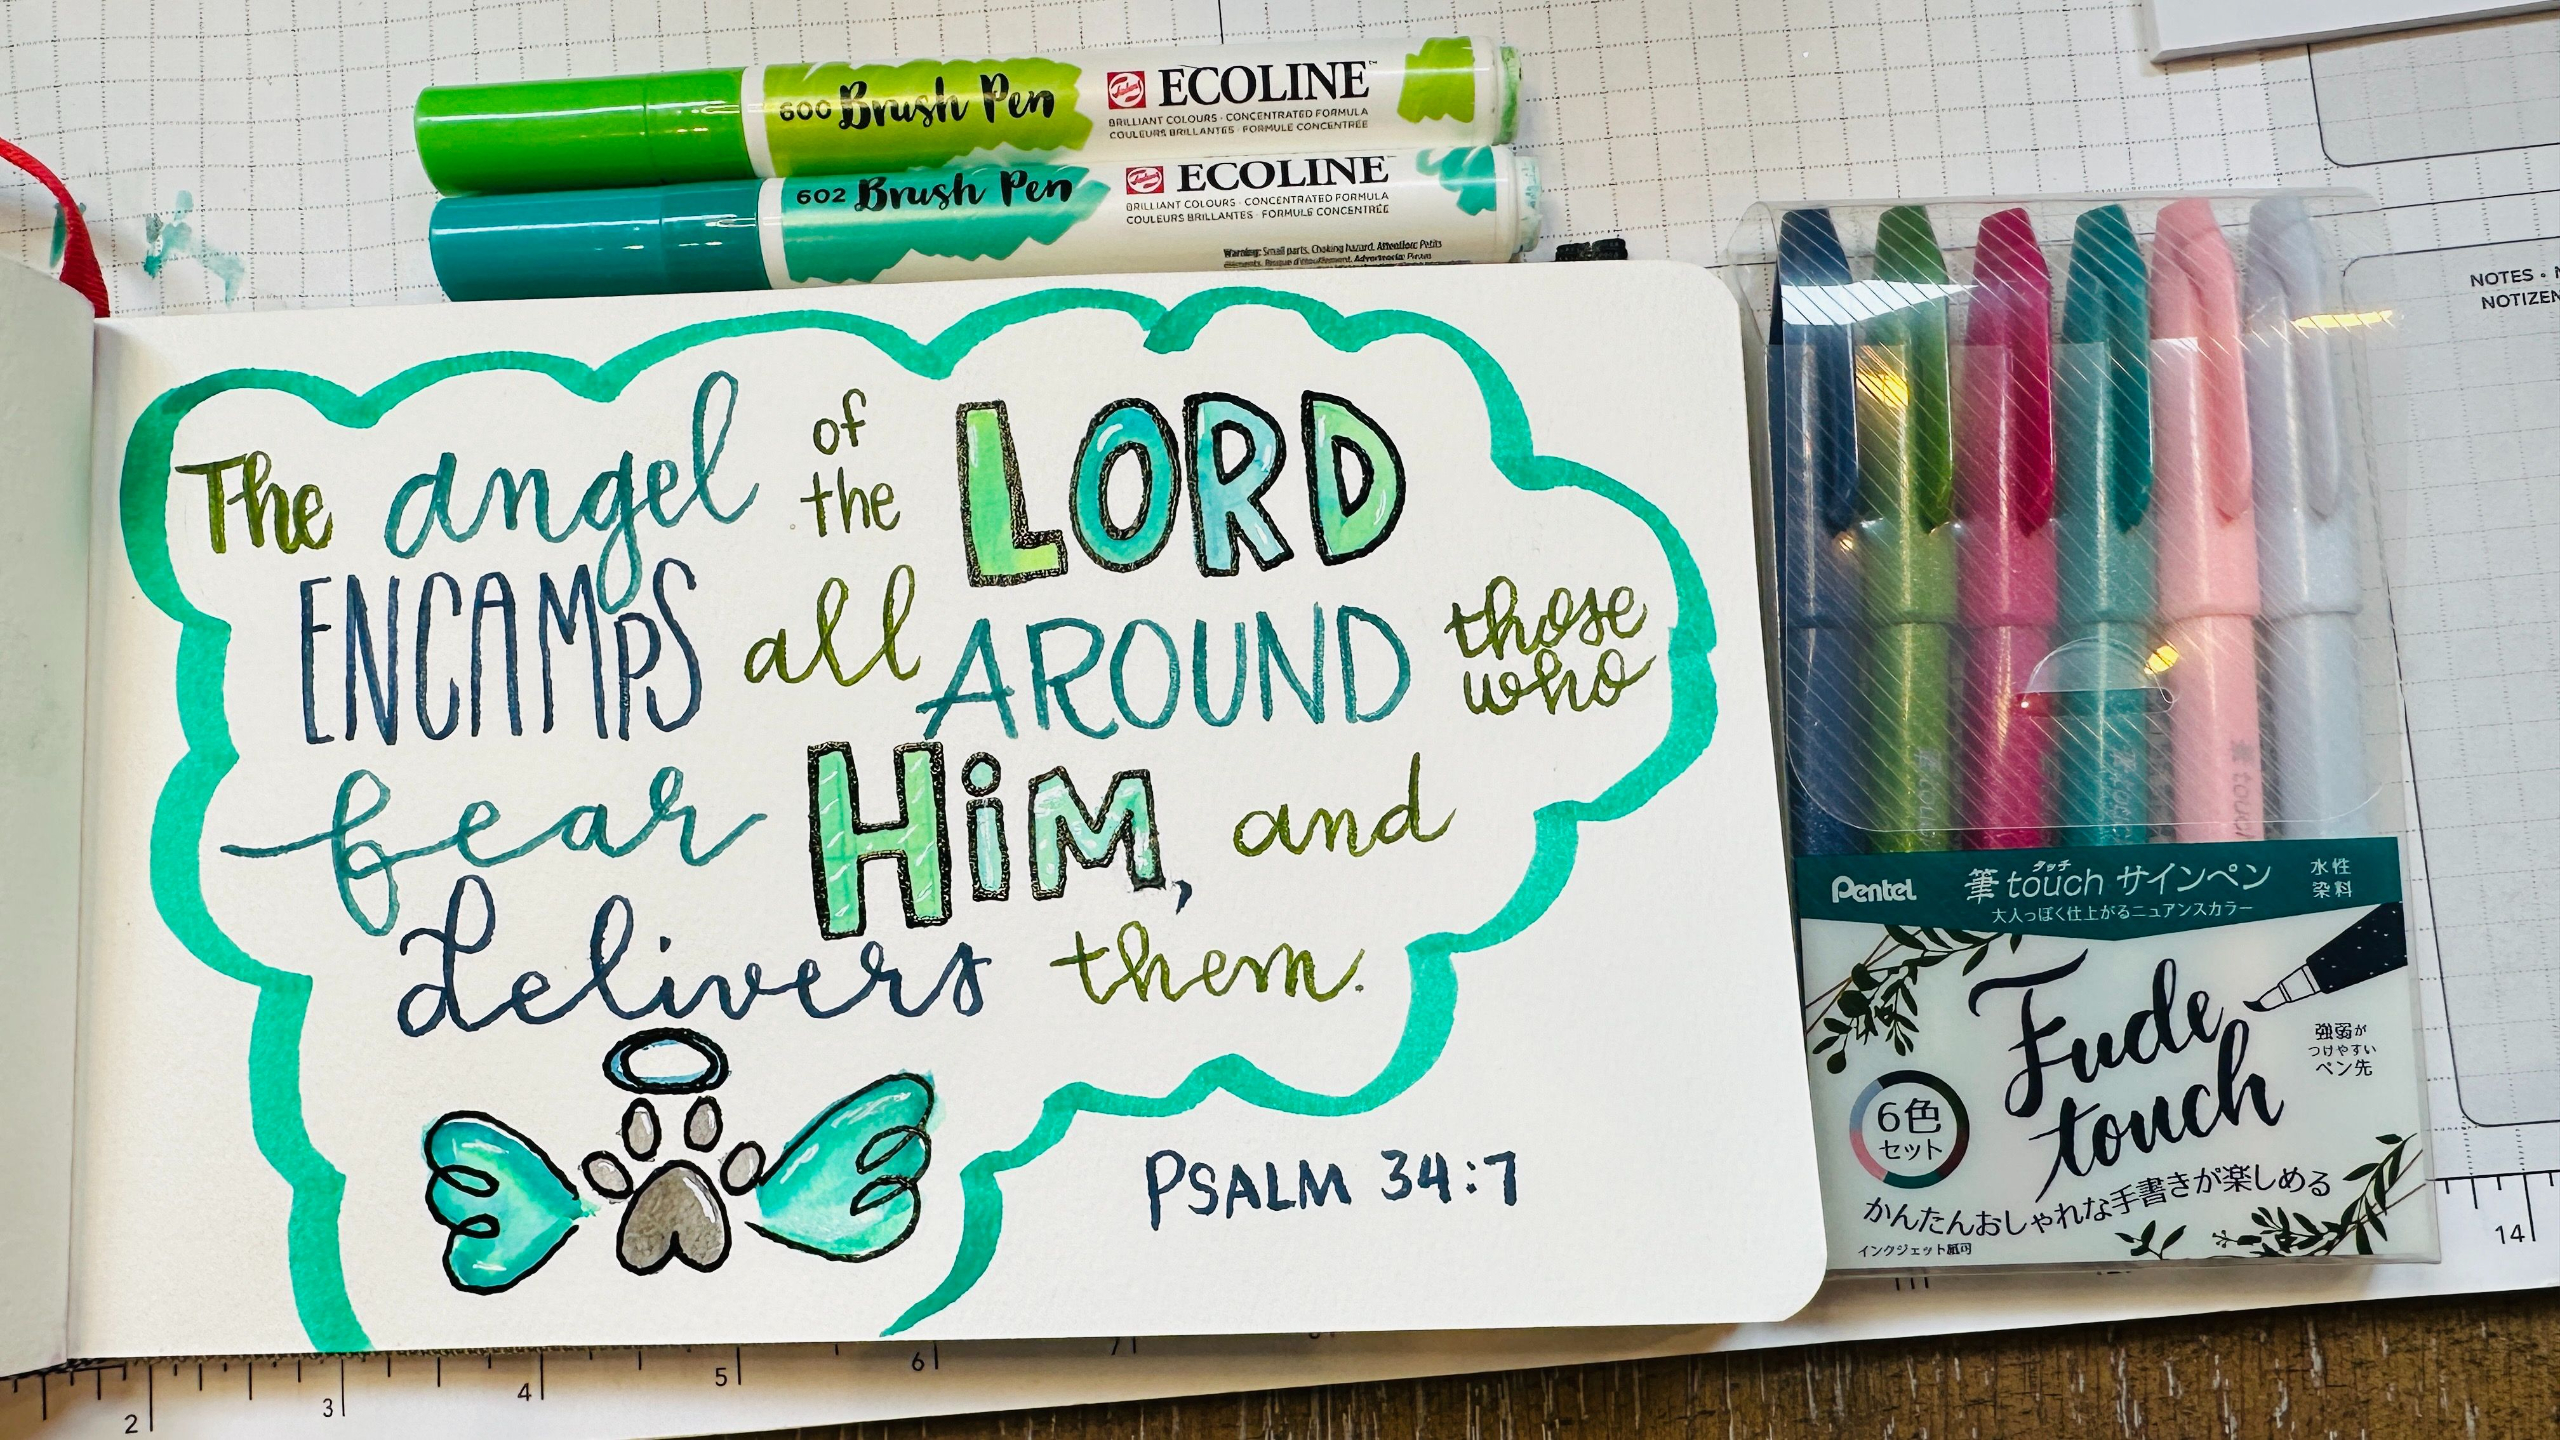 600 Brush Pen ECOLINE™
BRILLIANT COLOURS · CONCENTRATED FORMULA
COULEURS BRILLANTES · FORMULE CONCENTRÉE
602 Brush Pen ECOLINE
BRILLIANT COLOURS · CONCENTRATED FORMULA
COULEURS BRILLANTES · FORMULE CONCENTRÉE
Warning: Small parts. Choking hazard. Attention: Petits
NOTES •
NOTIZEN
The angel of the LORD
ENCAMPS all AROUND those who
fear HiM, and
delivers them.
PSALM 34:7
Pentel
タッチ
筆touchサインペン
水性
染料
大人っぽく仕上がるニュアンスカラー
Fude
touch
強弱が
つけやすい
ペン先
6色
セット
かんたんおしゃれな手書きが楽しめる
インクジェット紙可
2 3 4 5 6 7
14